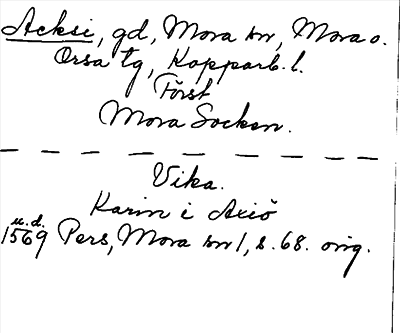 Acksi, gd, Mora sn, Mora o.
Orsa tg, Kopparb. l.
Först
Mora Socken.
Vika.
Karin i Axiö
u. d.
1569 Pers, Mora sn 1, s. 68. orig.